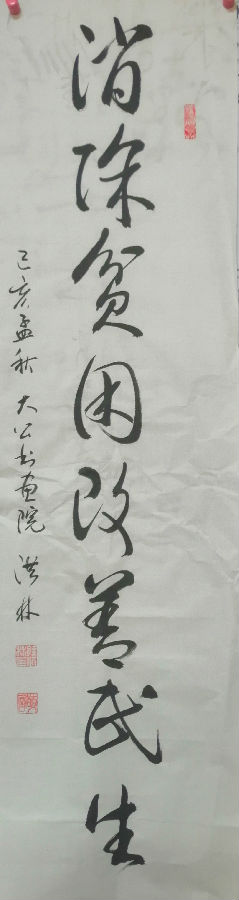 消除贫困改善民生
己亥孟秋 大公书画院 洪林